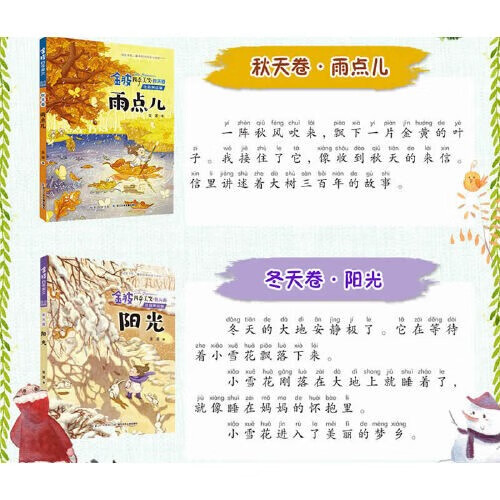 秋天卷·雨点儿
yí zhèn qiū fēng chuī lái piāo xià yí piàn jīn huáng de yè
一阵秋风吹来，飘下一片金黄的叶
zi wǒ jiē zhù le tā xiàng shōu dào qiū tiān de lái xìn
子。我接住了它，像收到秋天的来信。
xìn lǐ jiǎng shù zhe dà shù sān bǎi nián de gù shi
信里讲述着大树三百年的故事。
金波
四季美文
雨点儿
冬天卷·阳光
dōng tiān de dà dì ān jìng jí le tā zài děng dài
冬天的大地安静极了。它在等待
zhe xiǎo xuě huā piāo luò xià lái
着小雪花飘落下来。
xiǎo xuě huā gāng luò zài dà dì shàng jiù shuì zháo le
小雪花刚落在大地上就睡着了，
jiù xiàng shuì zài mā ma de huái bào lǐ
就像睡在妈妈的怀抱里。
xiǎo xuě huā jìn rù le měi lì de mèng xiāng
小雪花进入了美丽的梦乡。
金波
四季美文
阳光